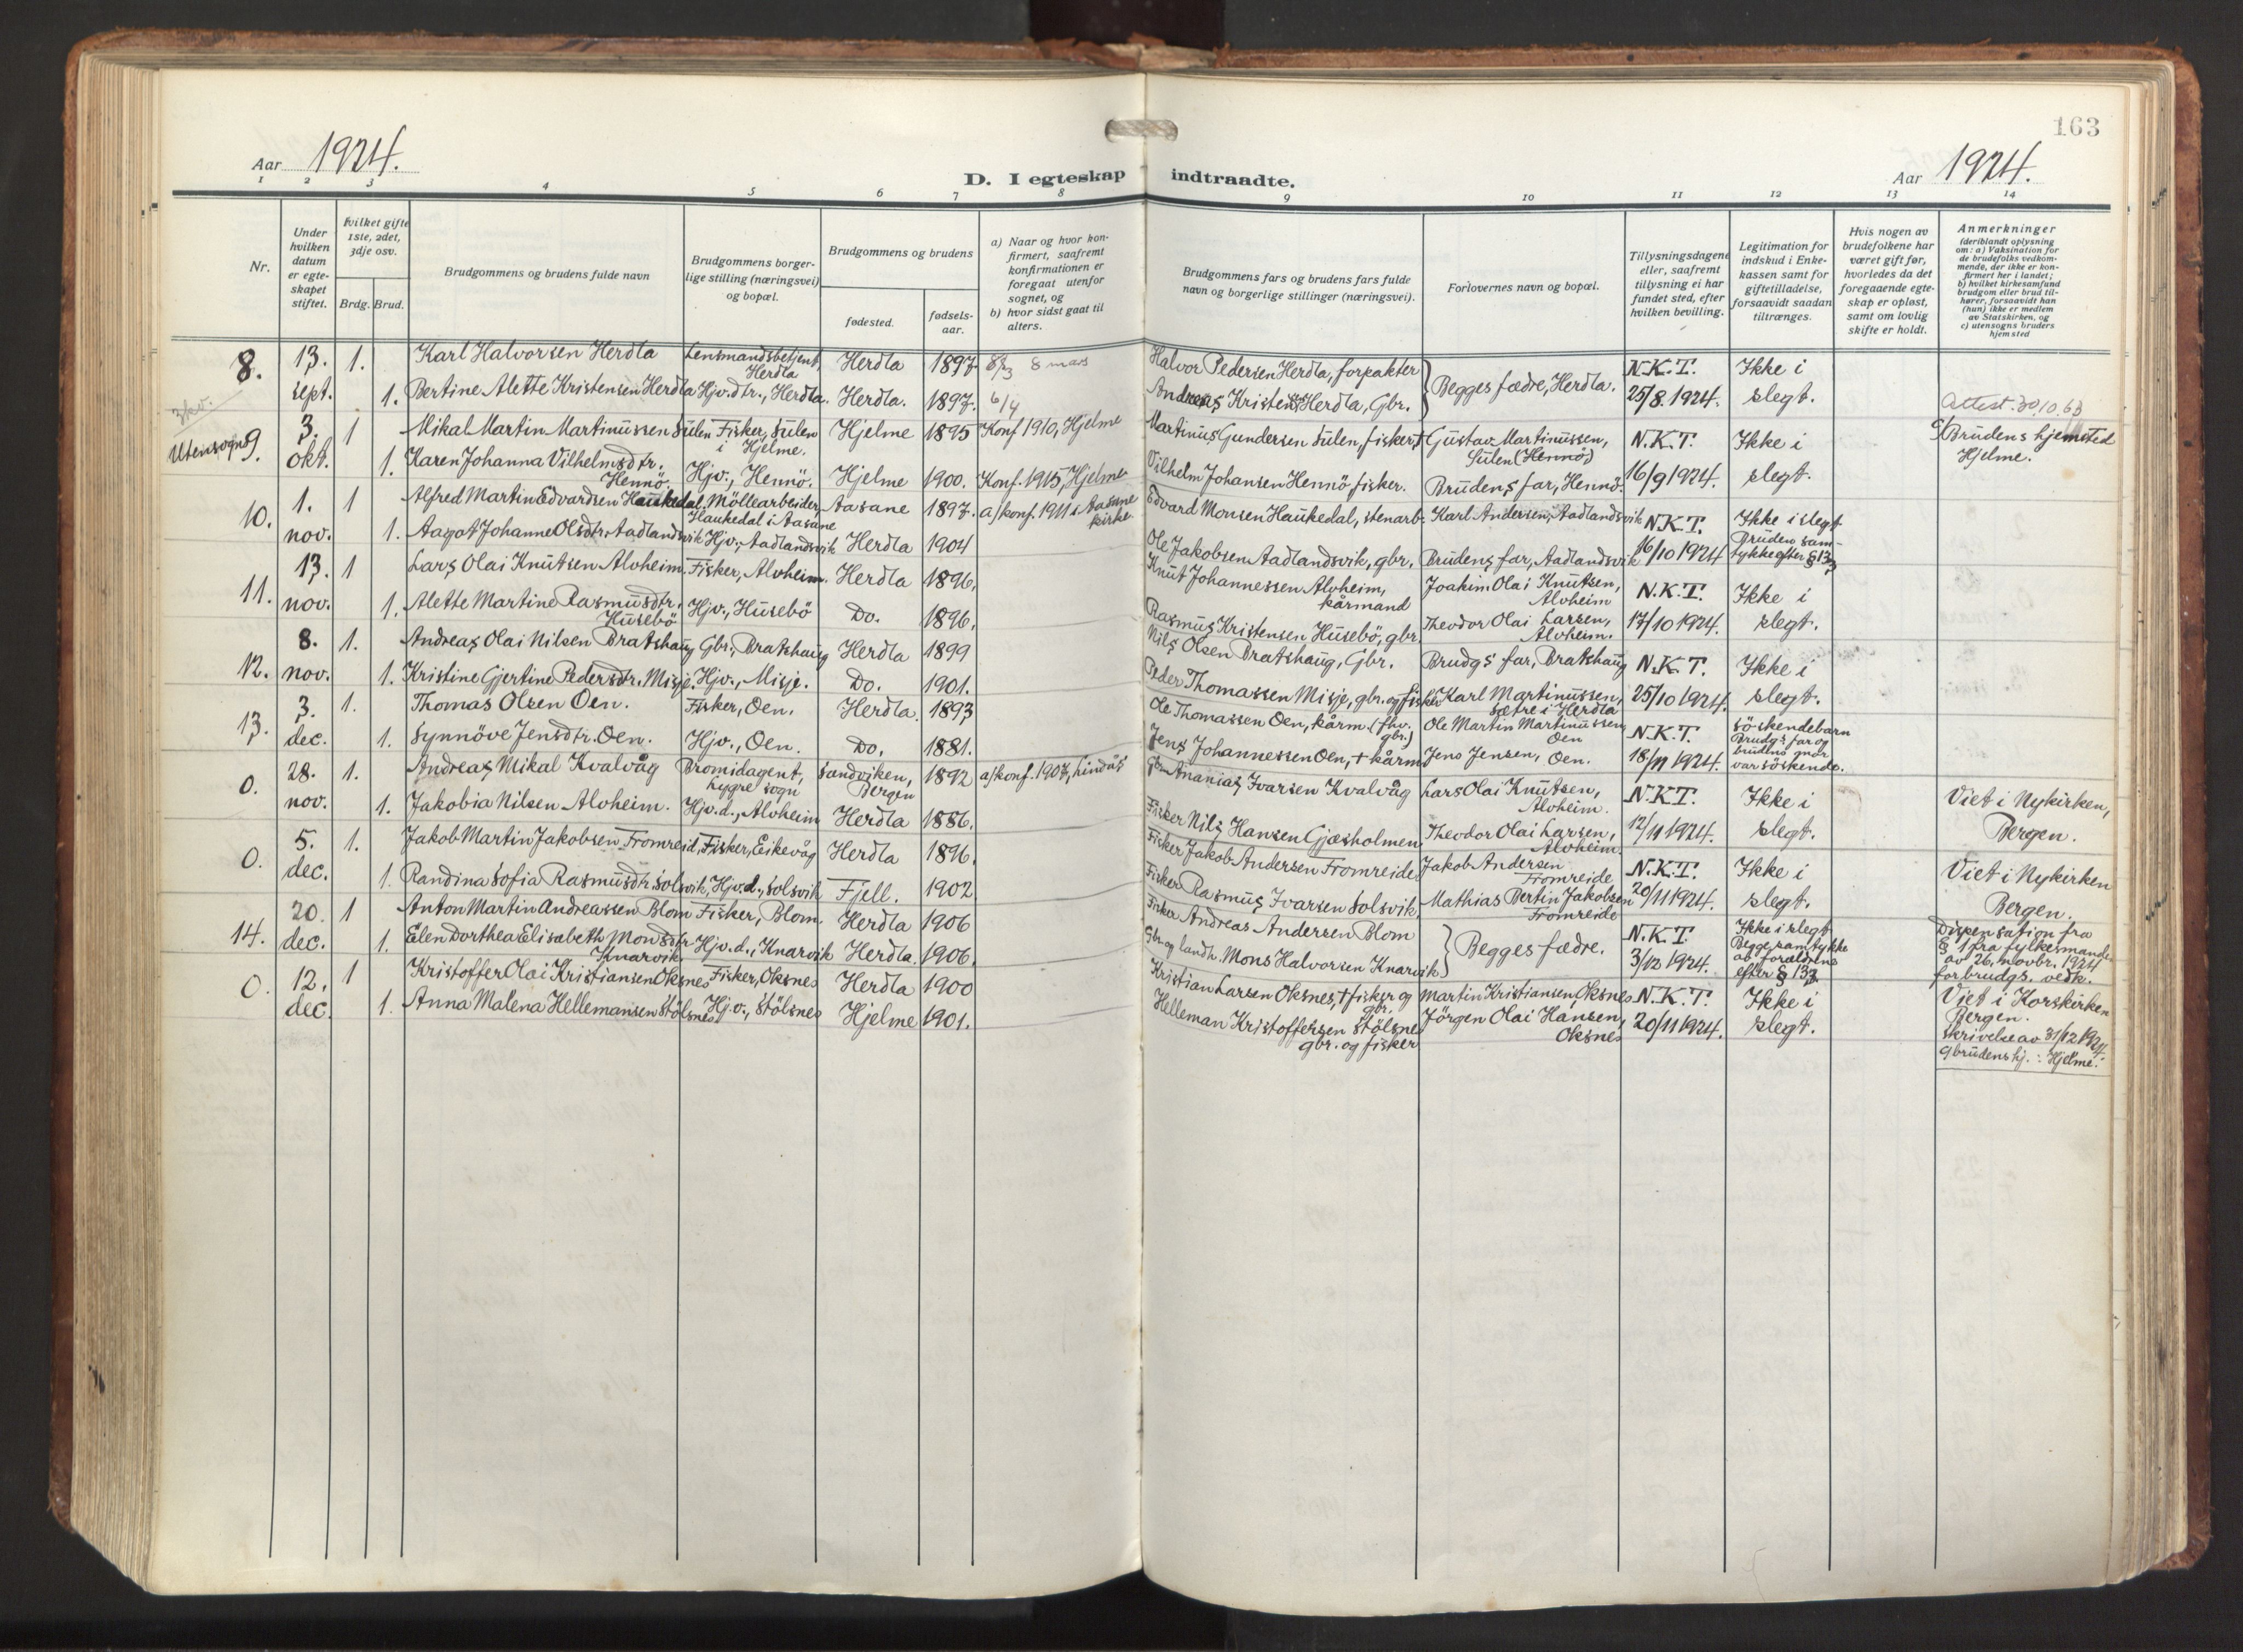 163
Aar 1924.
D. I egteskap indtraadte.
Aar 1924.
1 2 3 4 5 6 7 8 9 10 11 12 13 14
Nr.
Under hvilken datum er egteskapet stiftet.
Hvilket gifte 1ste, 2det, 3dje osv.
Brdg. Brud.
Brudgommens og brudens fulde navn
Brudgommens borgerlige stilling (næringsvei) og bopæl.
Brudgommens og brudens
fødested.
fødselsaar.
a) Naar og hvor konfirmert, saafremt konfirmationen er foregaat utenfor sognet, og
b) hvor sidst gaat til alters.
Brudgommens fars og brudens fars fulde navn og borgerlige stillinger (næringsvei).
Forlovernes navn og bopæl.
Tillysningsdagene eller, saafremt tillysning ei har fundet sted, efter hvilken bevilling.
Legitimation for indskud i Enkekassen samt for giftetilladelse, forsaavidt saadan tiltrænges.
Hvis nogen av brudefolkene har været gift før, hvorledes da det foregaaende egteskap er opløst, samt om lovlig skifte er holdt.
Anmerkninger
(deriblandt oplysning om: a) Vaksination for de brudefolks vedkommende, der ikke er konfirmert her i landet; b) hvilket kirkesamfund brudgom eller brud tilhører, forsaavidt han (hun) ikke er medlem av Statskirken, og c) utensogns bruders hjemsted
8. 13. sept. 1. Karl Halvorsen Herdla Lensmandsbetjent, Herdla Herdla 1897 8/3 8 mars Halvor Pedersen Herdla, forpakter Begges fædre, Herdla. N.K.T. 25/8.1924. Ikke i slegt.
1. Bertine Alette Kristensen Herdla Hjv. dtr., Herdla. Herdla. 1897. 6/4 Andreas Kristensen Herdla, Gbr. Attest. 30/10.63
Utensogns 9. 3. okt. 1 Mikal Martin Martinussen Sulen Fisker, Sulen i Hjelme. Hjelme 1895 Konf 1910, Hjelme Martinus Gundersen Sulen, fisker,† Gustav Martinussen, Sulen (Hennö) N.K.T. 16/9 1924. Ikke i slegt. c) Brudens hjemsted Hjelme.
1. Karen Johanna Vilhelmsdtr. Hennö. Hjv., Hennö. Hjelme 1900. Konf. 1915, Hjelme Vilhelm Johansen Hennö, fisker. Brudens far, Hennö.
10. 1. nov. 1 Alfred Martin Edvardsen Haukedal. Möllearbeider, Haukedal i Aasane Aasane 1897. a) konf. 1911 i Aasane kirke Edvard Monsen Haukedal, stenarb. Karl Andersen, Aadlandsvik N.K.T. 16/10 1924 Ikke i slegt Bruden samtykke efter § 13,3
1. Aagot Johanne Olsdtr. Aadlandsvik Hjv., Aadlandsvik Herdla 1904 Ole Jakobsen Aadlandsvik, gbr. Brudens far, Aadlandsvik
11. 13. nov. 1 Lars Olai Knutsen Alvheim. Fisker, Alvheim. Herdla 1896. Knut Johannessen Alvheim, kårmand Joakim Olai Knutsen, Alvheim N.K.T. 17/10 1924. Ikke i slegt.
1. Alette Martine Rasmusdtr. Husebö Hjv., Husebö Do. 1896. Rasmus Kristensen Husebö, gbr Theodor Olai Larsen, Alvheim.
12. 8. nov. 1. Andreas Olai Nilsen Bratshaug Gbr., Bratshaug Herdla 1899 Nils Olsen Bratshaug, Gbr. Brudgs far, Bratshaug N.K.T. 25/10 1924. Ikke i slegt.
1. Kristine Gjertine Pedersdtr. Misje. Hjv., Misje. Do. 1901. Peder Thomassen Misje, gbr. og fisker Karl Martinussen, Sætre i Herdla
13. 3. dec. 1. Thomas Olsen Oen. Fisker, Oen. Herdla. 1893 Ole Thomassen Oen, kårm. (fhv. gbr.) Ole Martin Martinussen Oen N.K.T. 18/11 1924. söskendebarn Brudgs far og brudens mor var söskende.
1. Synnöve Jensdtr. Oen. Hjv., Oen. Do. 1881. Jens Johannessen Oen, † kårm. Jens Jensen, Oen.
0. 28. nov. 1. Andreas Mikal Kvalvåg Bromidagent, Lygre sogn Sandviken, Bergen 1892 a) konf. 1907, Lindås Gbr. Ananias Ivarsen Kvalvåg Lars Olai Knutsen, Alvheim. N.K.T. 12/11 1924. Ikke i slegt. Viet i Nykirken, Bergen.
1. Jakobia Nilsen Alvheim. Hjv.d., Alvheim Herdla 1886. Fisker Nils Hansen Gjæsholmen Theodor Olai Larsen, Alvheim.
0. 5. dec. 1. Jakob Martin Jakobsen Fromreid, Fisker, Eikevåg Herdla 1896. Fisker Jakob Andersen Fromreide Jakob Andersen Fromreide N.K.T. 20/11 1924. Ikke i slegt. Viet i Nykirken Bergen.
1. Randina Sofia Rasmusdtr. Solsvik, Hjv.d., Solsvik Fjell. 1902 Fisker Rasmus Ivarsen Solsvik. Mathias Bertin Jakobsen Fromreide
14. 20. dec. 1 Anton Martin Andreassen Blom Fisker, Blom. Herdla 1906 Fisker Andreas Andersen Blom Begges fædre. N.K.T. 3/12 1924. Ikke i slegt Begge samtykke af forældrene efter § 13,3 Dispensation fra § 1 fra fylkesmanden av 26. novbr. 1924 for brudgs. vedk.
1. Elen Dorthea Elisabeth Monsdtr Knarvik Hjv.d., Knarvik Herdla. 1906. Gbr. og landh. Mons Halvorsen Knarvik
0. 12. dec. 1 Kristoffer Olai Kristiansen Oksnes Fisker, Oksnes Herdla 1900 Kristian Larsen Oksnes, † fisker og gbr. Martin Kristiansen, Oksnes N.K.T. 20/11 1924. Ikke i slegt. Viet i Korskirken Bergen. Skrivelse av 31/12 1924. c) brudens hj.: Hjelme.
1. Anna Malena Hellemansen Stölsnes Hj.v., Stölsnes Hjelme 1901. Helleman Kristoffersen Stölsnes gbr. og fisker Jörgen Olai Hansen, Oksnes